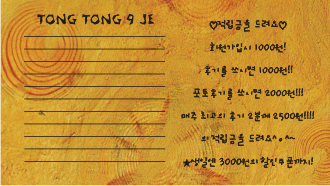 TONG TONG 9 JE
♡적립금을 드려요♡
회원가입시 1000원!
후기를 쓰시면 1000원!!
포토후기를 쓰시면 2000원!!!
매주 최고의 후기 2분께 2500원!!!!
의 적립금을 드려요^o^~
★생일엔 3000원의 할인쿠폰까지!